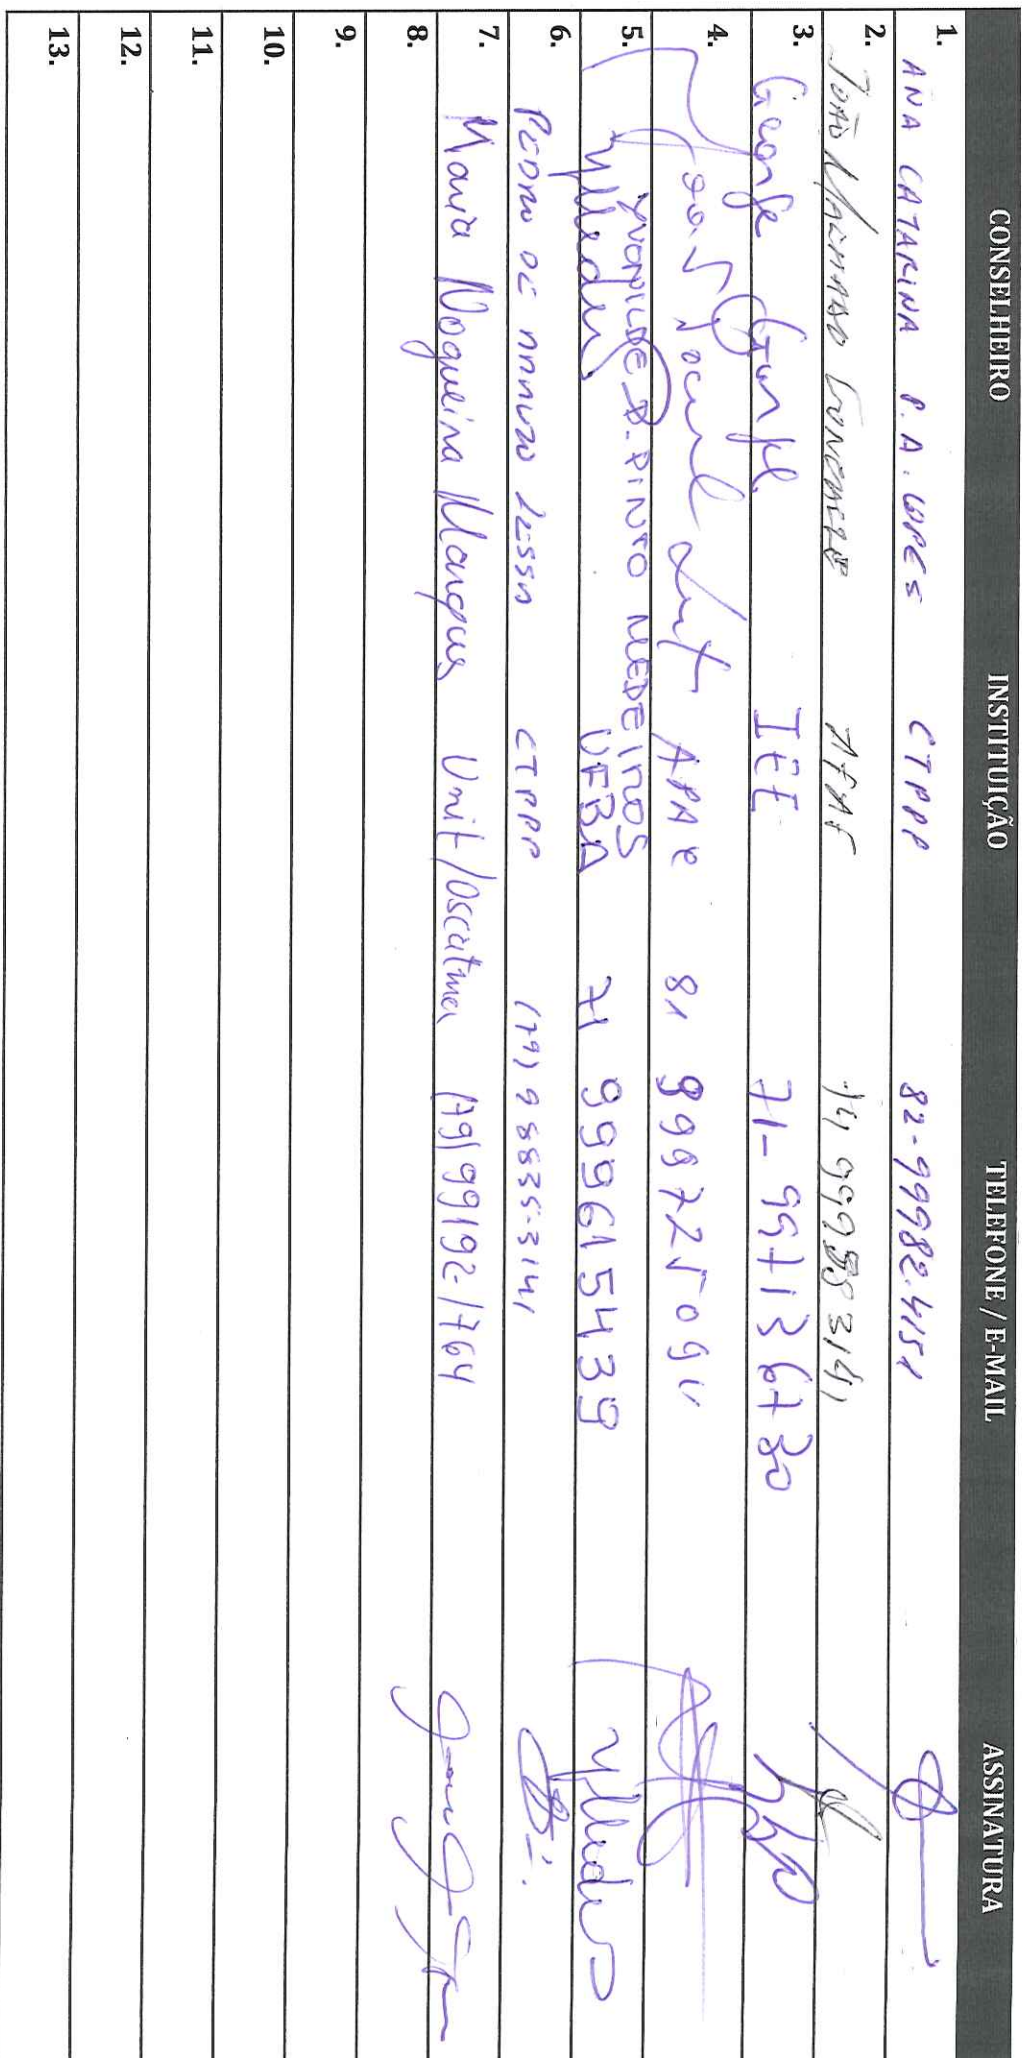 CONSELHEIRO INSTITUIÇÃO TELEFONE / E-MAIL ASSINATURA
1. ANA CATARINA P. A. LOPES CTPPP 82-99982.4151
2. JOÃO MACHADO AFAF
3. George Gurgel IEE 71- 99713 6730
4. APAR 81
5. YVONILDE D. PINTO MEDEIROS UFBA 71 999615439
6. PEDRO DE ARAUZO LESSA CTPPP (79) 98835-3141
7. Maria Nogueira Marques Unit/Oscatma (79) 99192-1764
8.
9.
10.
11.
12.
13.